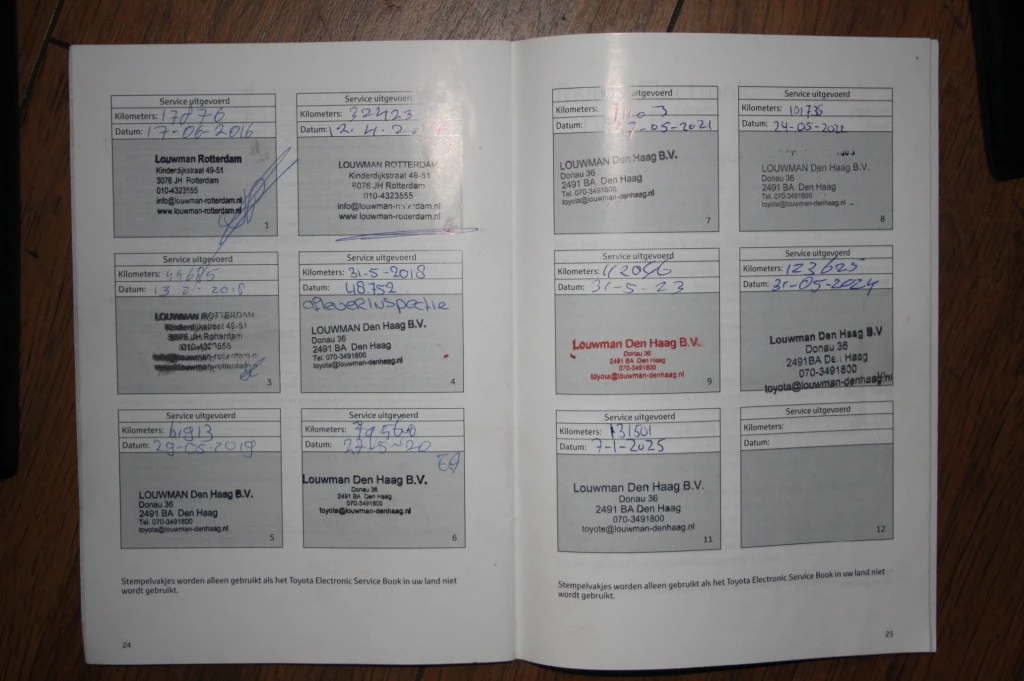 Service uitgevoerd
Kilometers: 17876
Datum: 17-06-2016
Louwman Rotterdam
Kinderdijkstraat 49-51
3076 JH Rotterdam
010-4323555
info@louwman-rotterdam.nl
www.louwman-rotterdam.nl
1
Service uitgevoerd
Kilometers: 32423
Datum:
LOUWMAN ROTTERDAM
Kinderdijkstraat 49-51
3076 JH Rotterdam
010-4323555
info@louwman-rotterdam.nl
www.louwman-rotterdam.nl
Service uitgevoerd
Kilometers: 44685
Datum: 13 2 2018
LOUWMAN ROTTERDAM
Kinderdijkstraat 49-51
3076 JH Rotterdam
010-4323555
3
Service uitgevoerd
Kilometers: 31-5-2018
Datum: 48752
afleverinspectie
LOUWMAN Den Haag B.V.
Donau 36
2491 BA Den Haag
Tel. 070-3491800
toyota@louwman-denhaag.nl
4
Service uitgevoerd
Kilometers: 61913
Datum: 29-05-2019
LOUWMAN Den Haag B.V.
Donau 36
2491 BA Den Haag
Tel. 070-3491800
toyota@louwman-denhaag.nl
5
Service uitgevoerd
Kilometers:
Datum: 27-5-20
LOUWMAN Den Haag B.V.
Donau 36
2491 BA Den Haag
070-3491800
toyota@louwman-denhaag.nl
6
Stempelvakjes worden alleen gebruikt als het Toyota Electronic Service Book in uw land niet
wordt gebruikt.
24
Service uitgevoerd
Kilometers:
Datum: -05-2021
LOUWMAN Den Haag B.V.
Donau 36
2491 BA Den Haag
Tel. 070-3491800
toyota@louwman-denhaag.nl
7
Service uitgevoerd
Kilometers: 101735
Datum: 24-05-2022
LOUWMAN Den Haag B.V.
Donau 36
2491 BA Den Haag
Tel. 070-3491800
toyota@louwman-denhaag.nl
8
Service uitgevoerd
Kilometers:
Datum: 31-5-23
Louwman Den Haag B.V.
Donau 36
2491 BA Den Haag
070-3491800
toyota@louwman-denhaag.nl
9
Service uitgevoerd
Kilometers: 123625
Datum: 31-05-2024
LOUWMAN Den Haag B.V
Donau 36
2491 BA Den Haag
070-3491800
toyota@louwman-denhaag.nl
Service uitgevoerd
Kilometers: 131501
Datum: 7-1-2025
LOUWMAN Den Haag B.V.
Donau 36
2491 BA Den Haag
070-3491800
toyota@louwman-denhaag.nl
11
Service uitgevoerd
Kilometers:
Datum:
12
Stempelvakjes worden alleen gebruikt als het Toyota Electronic Service Book in uw land niet
wordt gebruikt.
25